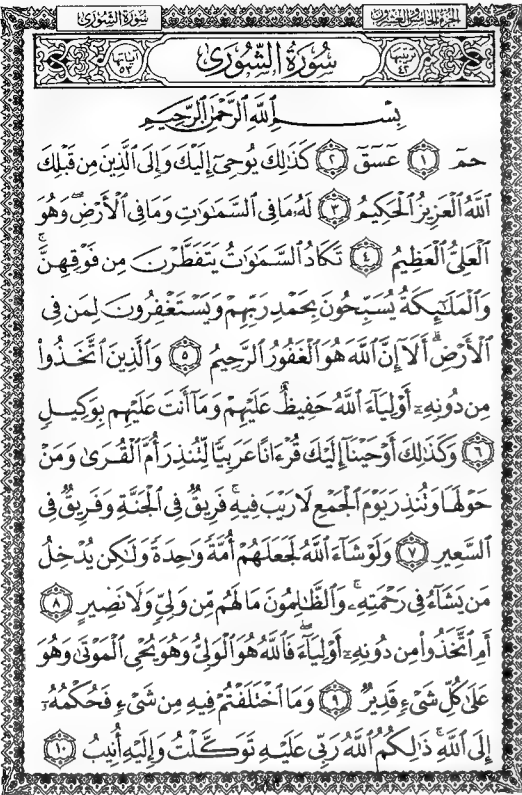 سُورَةُ الشُّورَىٰ الجُزْءُ الخَامِسُ وَالعِشْرُونَ
آيَاتُهَا ٥٣ سُورَةُ الشُّورَىٰ تَرْتِيبُهَا ٤٢
بِسْمِ ٱللَّهِ ٱلرَّحْمَٰنِ ٱلرَّحِيمِ
حمٓ ١ عٓسٓقٓ ٢ كَذَٰلِكَ يُوحِىٓ إِلَيْكَ وَإِلَى ٱلَّذِينَ مِن قَبْلِكَ
ٱللَّهُ ٱلْعَزِيزُ ٱلْحَكِيمُ ٣ لَهُۥ مَا فِى ٱلسَّمَٰوَٰتِ وَمَا فِى ٱلْأَرْضِ ۖ وَهُوَ
ٱلْعَلِىُّ ٱلْعَظِيمُ ٤ تَكَادُ ٱلسَّمَٰوَٰتُ يَتَفَطَّرْنَ مِن فَوْقِهِنَّ ۚ
وَٱلْمَلَٰٓئِكَةُ يُسَبِّحُونَ بِحَمْدِ رَبِّهِمْ وَيَسْتَغْفِرُونَ لِمَن فِى
ٱلْأَرْضِ ۗ أَلَآ إِنَّ ٱللَّهَ هُوَ ٱلْغَفُورُ ٱلرَّحِيمُ ٥ وَٱلَّذِينَ ٱتَّخَذُوا۟
مِن دُونِهِۦٓ أَوْلِيَآءَ ٱللَّهُ حَفِيظٌ عَلَيْهِمْ وَمَآ أَنتَ عَلَيْهِم بِوَكِيلٍ
٦ وَكَذَٰلِكَ أَوْحَيْنَآ إِلَيْكَ قُرْءَانًا عَرَبِيًّا لِّتُنذِرَ أُمَّ ٱلْقُرَىٰ وَمَنْ
حَوْلَهَا وَتُنذِرَ يَوْمَ ٱلْجَمْعِ لَا رَيْبَ فِيهِ ۚ فَرِيقٌ فِى ٱلْجَنَّةِ وَفَرِيقٌ فِى
ٱلسَّعِيرِ ٧ وَلَوْ شَآءَ ٱللَّهُ لَجَعَلَهُمْ أُمَّةً وَٰحِدَةً وَلَٰكِن يُدْخِلُ
مَن يَشَآءُ فِى رَحْمَتِهِۦ ۚ وَٱلظَّٰلِمُونَ مَا لَهُم مِّن وَلِىٍّ وَلَا نَصِيرٍ ٨
أَمِ ٱتَّخَذُوا۟ مِن دُونِهِۦٓ أَوْلِيَآءَ ۖ فَٱللَّهُ هُوَ ٱلْوَلِىُّ وَهُوَ يُحْىِ ٱلْمَوْتَىٰ وَهُوَ
عَلَىٰ كُلِّ شَىْءٍ قَدِيرٌ ٩ وَمَا ٱخْتَلَفْتُمْ فِيهِ مِن شَىْءٍ فَحُكْمُهُۥٓ
إِلَى ٱللَّهِ ۚ ذَٰلِكُمُ ٱللَّهُ رَبِّى عَلَيْهِ تَوَكَّلْتُ وَإِلَيْهِ أُنِيبُ ١٠